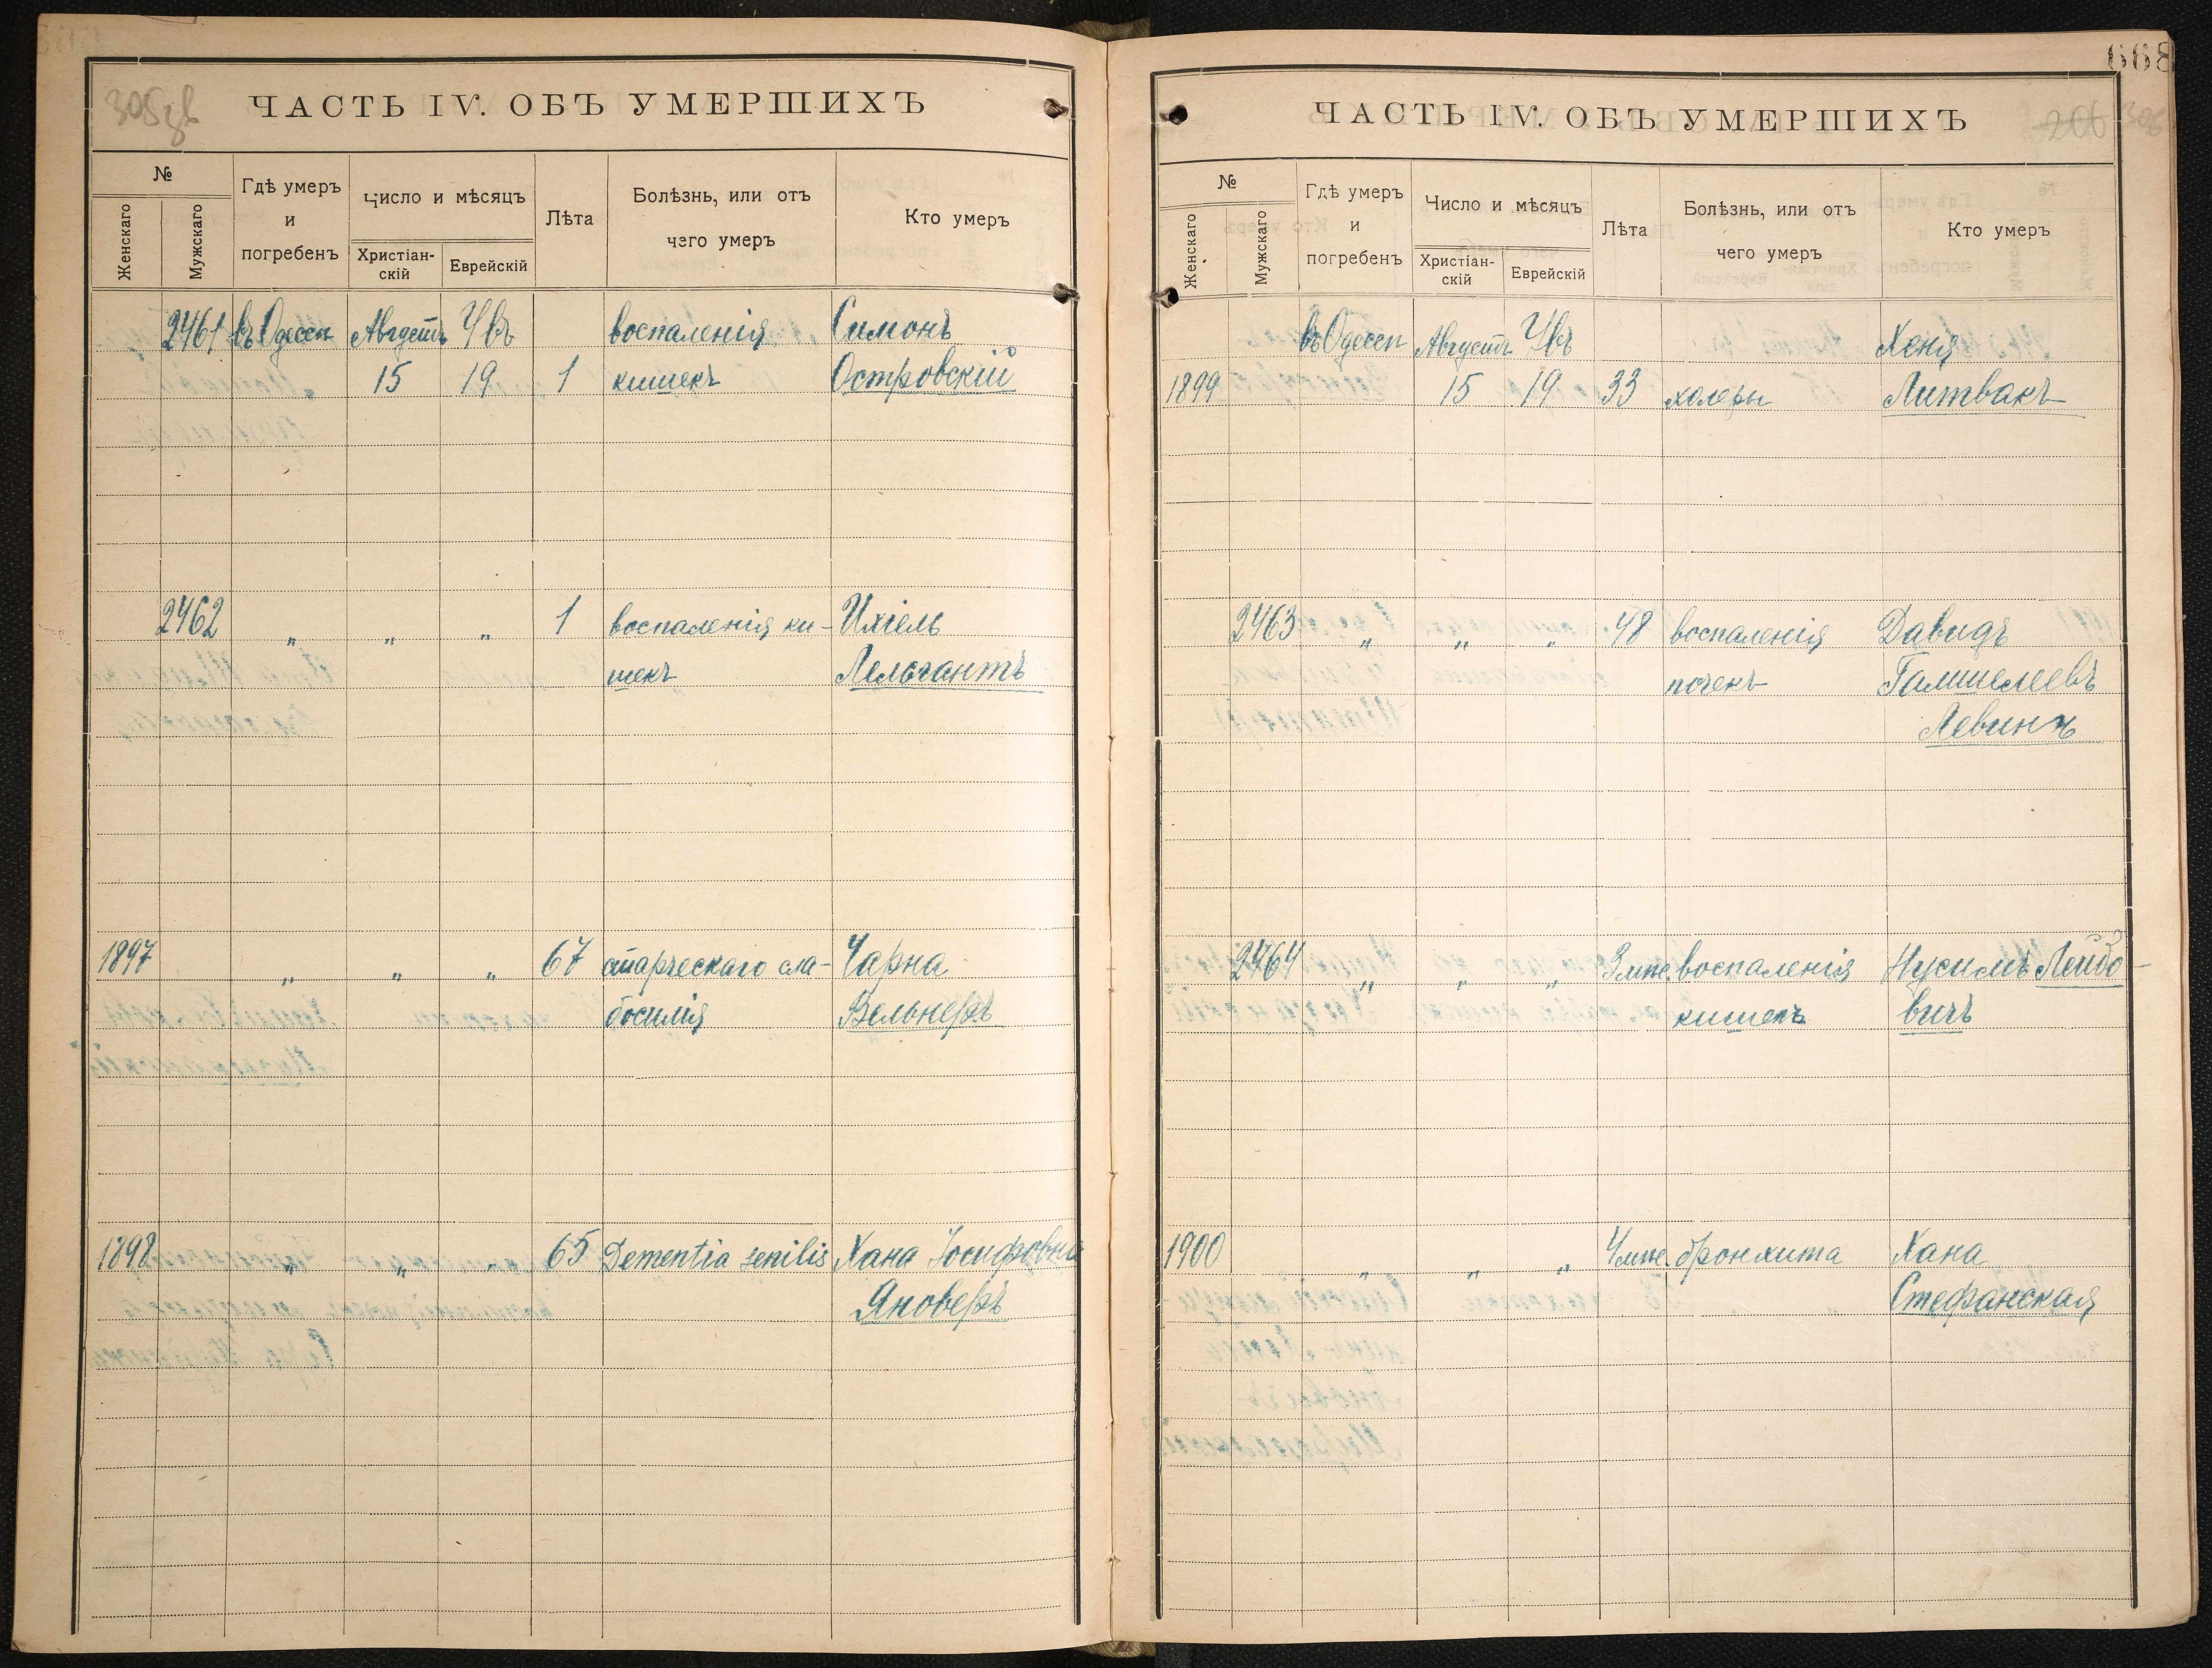 305
ЧАСТЬ IV. ОБЪ УМЕРШИХЪ
№
Женскаго
Мужскаго
Гдѣ умеръ
и
погребенъ
Число и мѣсяцъ
Христіан-
скій
Еврейскій
Лѣта
Болѣзнь, или отъ
чего умеръ
Кто умеръ
2461 въ Одессѣ Августъ воспаленія Симонъ
15 19 1 кишекъ Островскій
2462 „ „ „ 1 воспаленія ки- Ихіель
шекъ Лельчантъ
1897 „ „ „ 67 старческаго сла- Чарна
босилія Вельнеръ
1898 „ „ „ 65 Dementia senilis Хана Іосифовна
Яноверъ
668
ЧАСТЬ IV. ОБЪ УМЕРШИХЪ
206 306
№
Женскаго
Мужскаго
Гдѣ умеръ
и
погребенъ
Число и мѣсяцъ
Христіан-
скій
Еврейскій
Лѣта
Болѣзнь, или отъ
чего умеръ
Кто умеръ
въ Одессѣ Августъ Хеня
1899 15 19 33 холеры Литвакъ
2463 „ „ „ 48 воспаленія Давидъ
почекъ Гамшелеевъ
Левинъ
2464 „ „ „ 3 мце. воспаленія Нусимъ Лейбо-
кишекъ вичъ
1900 „ „ „ 4 мце. бронхита Хана
Стефанская